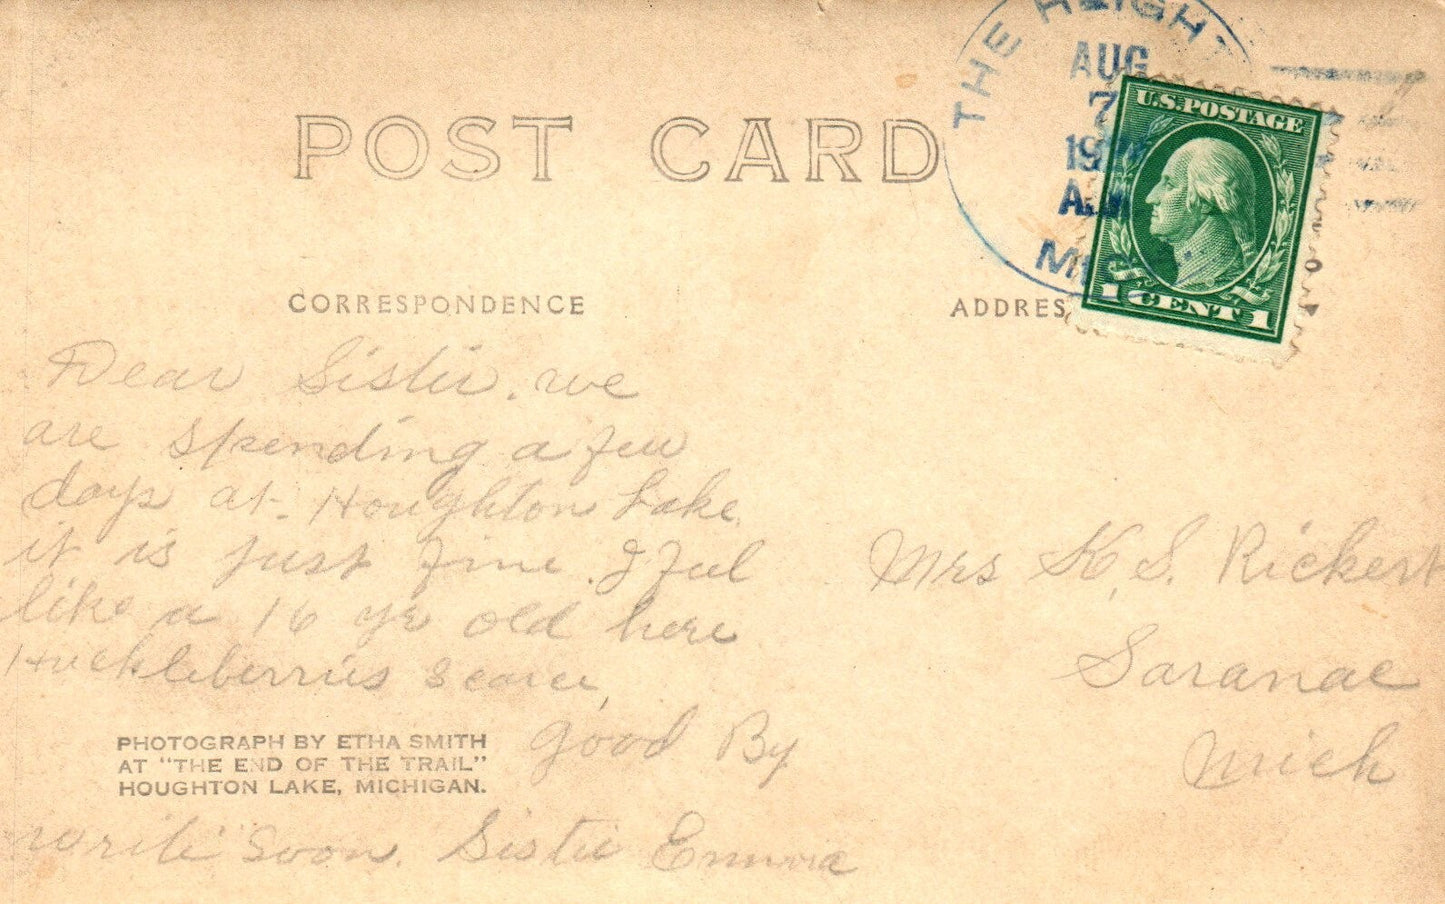 POST CARD
THE HEIGHT
AUG
7
U.S. POSTAGE
1 CENT 1
CORRESPONDENCE
ADDRES
Dear Sister. we
are spending a few
days at Houghton Lake.
it is just fine. I feel
like a 16 yr old here
Huckleberries scarce,
good By
write soon. Sister Emma
PHOTOGRAPH BY ETHA SMITH
AT "THE END OF THE TRAIL"
HOUGHTON LAKE, MICHIGAN.
Mrs K, S. Rickert
Saranac
Mich